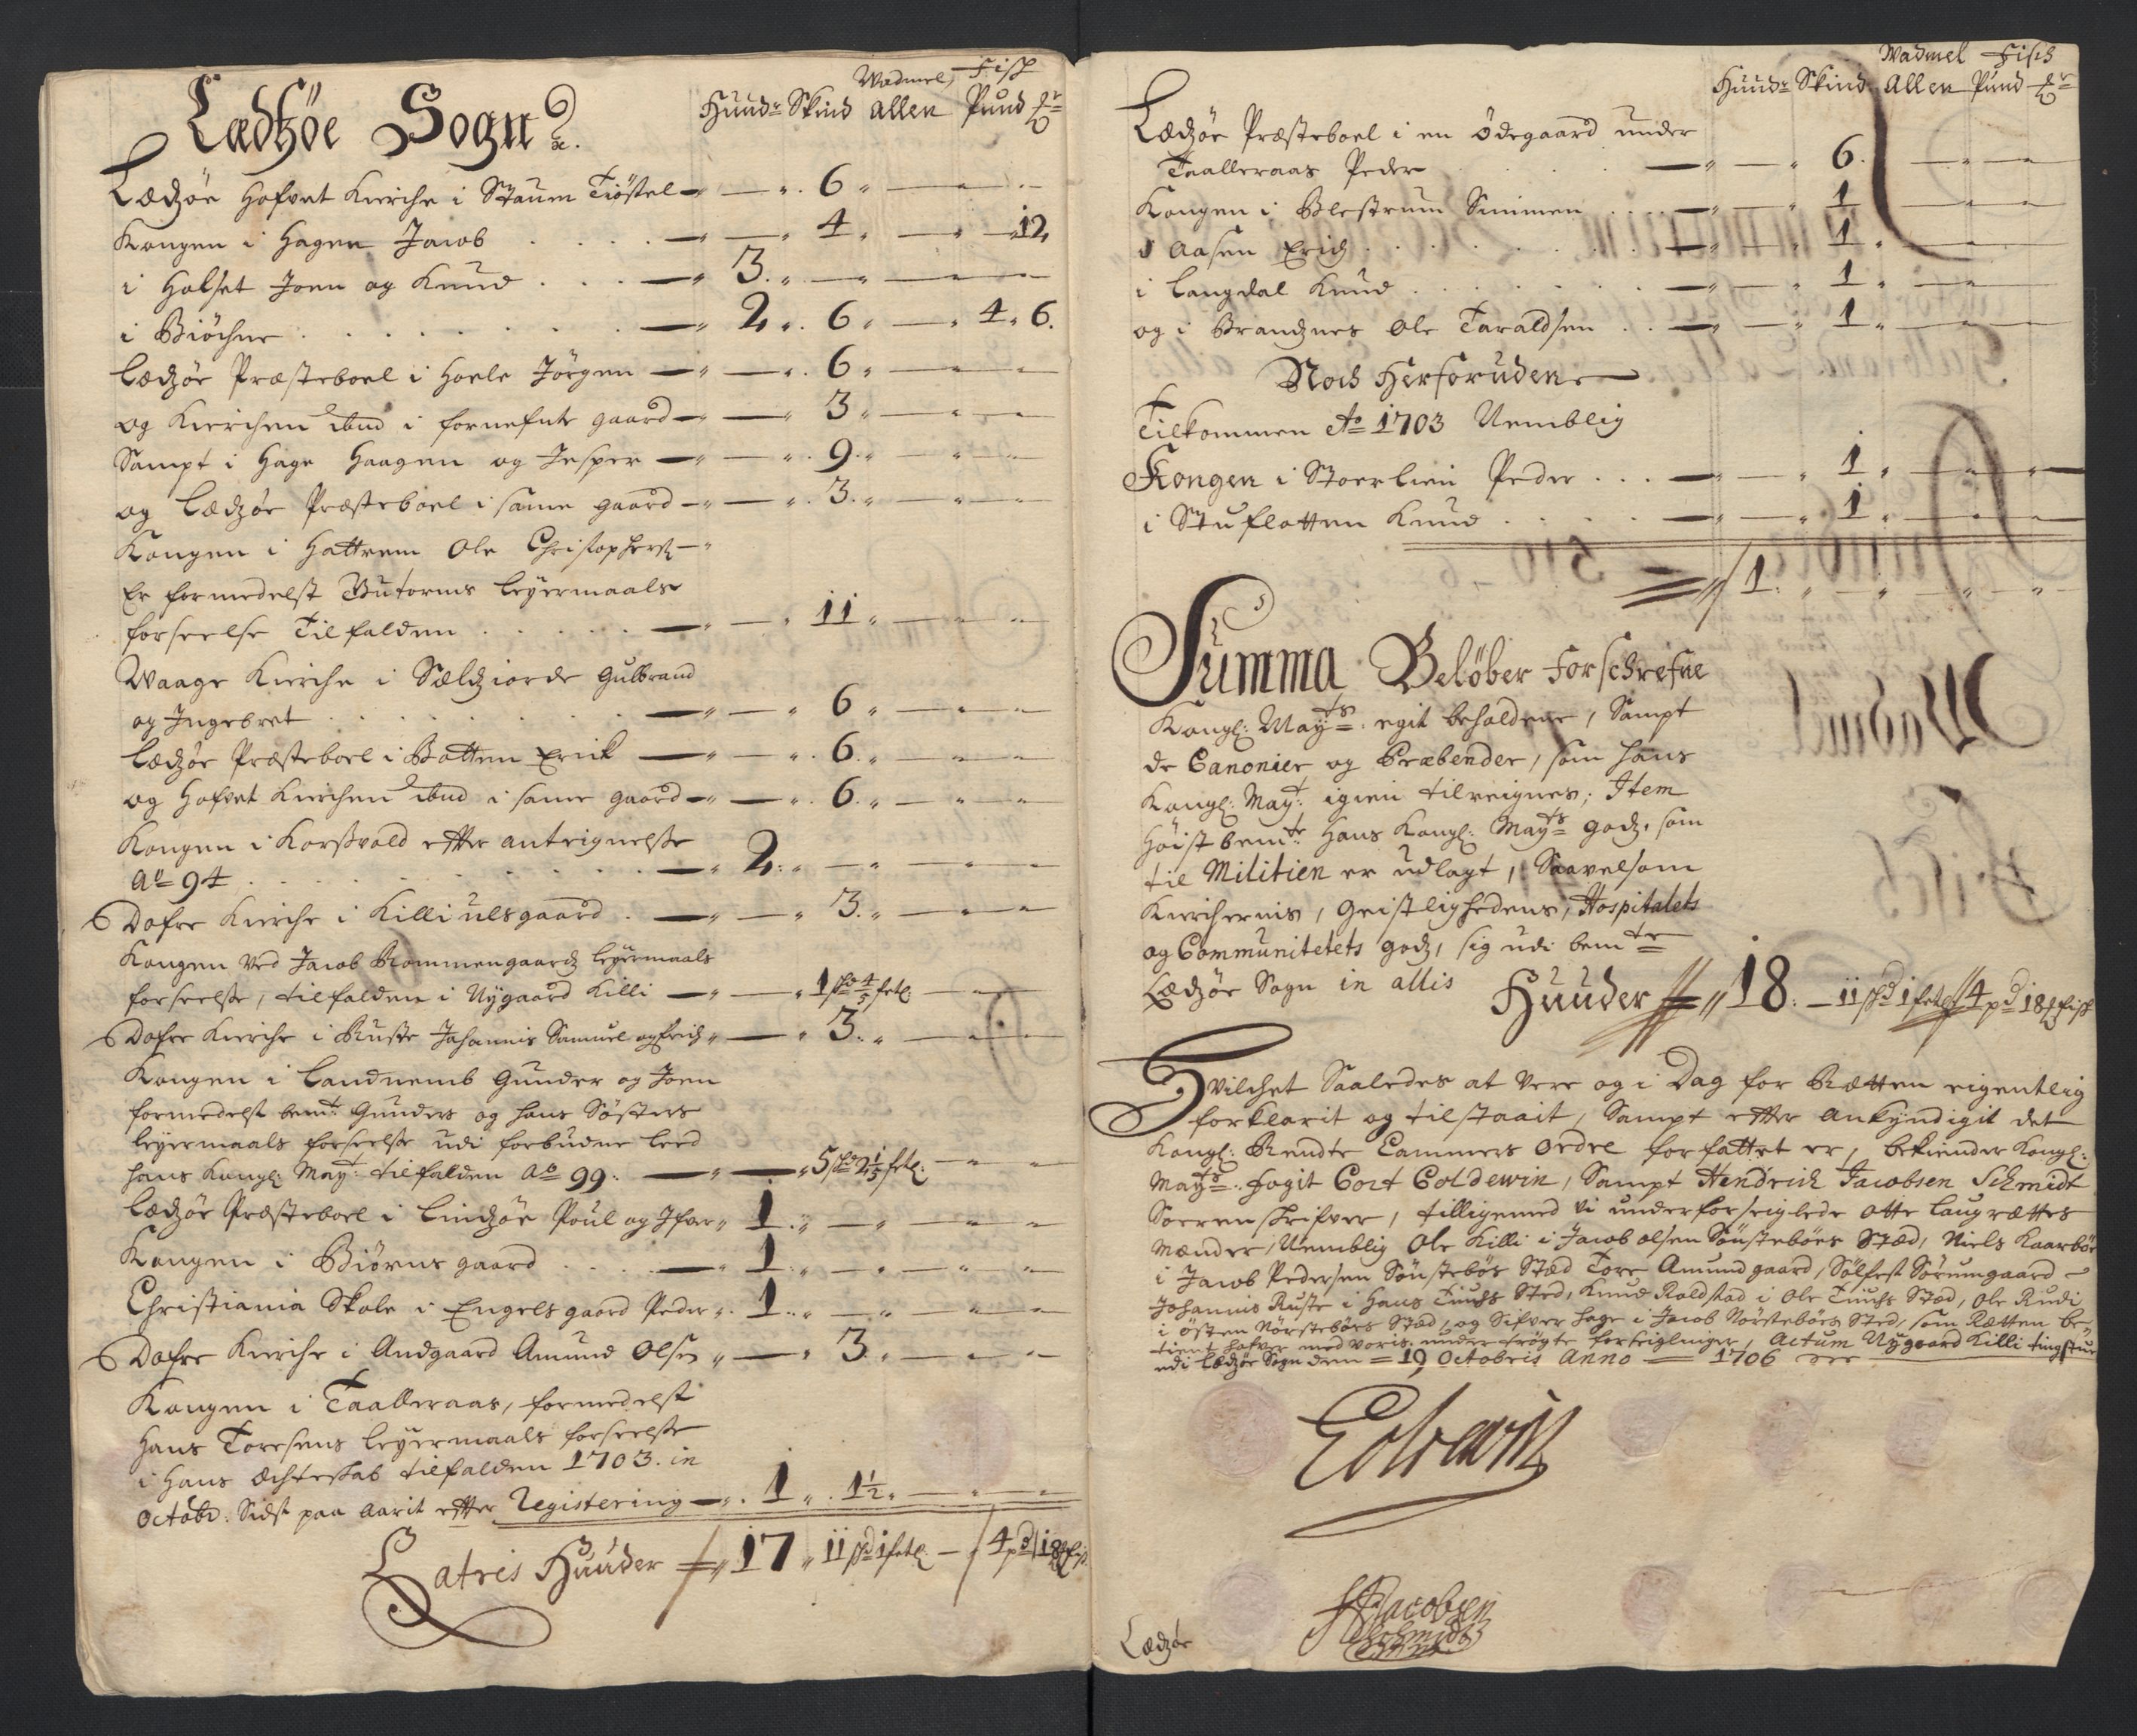 Wadmel Fisk
Lædzöe Sogn
Huud Skind Allen Pund
Lædzöe Hofvet Kirche i Staum Tiöstel — " — " 6 " — " —
Kongen i Hagen Jacob — " — " 4 " — " — 12
i Holset Joen og Knud — " 3 " — " — " —
i Biöchne — " 2 " 6 " — " 4 " 6.
Lædzöe Præsteboel i Hoele Jörgen — " — " 6 " — " —
og Kirchen ibid i fornefnte gaard — " — " 3 " — " —
Sampt i Hage Haagen og Jesper — " — " 9 " — " —
og Lædzöe Præsteboel i same gaard — " — " 3 " — " —
Kongen i Hattrem Ole Christophers
Er formedelst Gutorms leyermaals
forseelse Tilfalden — " — " 11 " — " —
Waage Kirche i Sælziorde Gulbrand
og Ingebret — " — " 6 " — " —
Lædzöe Præsteboel i Botten Erick — " — " 6 " — " —
og Hofvet Kirchen ibid i same gaard — " — " 6 " — " —
Kongen i Korßvold efter anteignelse
Ao 94 — " 2 " — " — " —
Dofre Kirche i Killi ulsgaard — " — " 3 " — " —
Kongen Ved Jacob Rommengaardz leyermaals
forseelße, tilfalden i Nygaard Killi — " — " 1 skd 4/5 fetl — " —
Dofre Kirche i Ruste Johannis Samuel og Erich " — " 3 " — " —
Kongen i Landnemb Gunder og Joen
formedelst bemte Gunders og hans Sösters
leyermaals forseelße udi forbudne leed
hans Kongl: Mayt: tilfalden Ao 99. — " — " 5 skd 2 1/5 fetl: — " —
Lædzöe Præsteboel i Lindzöe Poul og Ifver " 1 " — " — " —
Kongen i Biörns gaard — " 1 " — " — " —
Christiania Skole i Engelsgaard Peder " 1 " — " — " —
Dofre Kirche i Andgaard Amund Olsen " — " 3 " — " —
Kongen i Taalleraas, formedelst
Hans Toresens leyermaals forseelße
i Hans Ächteskab tilfalden 1703. in
Octobr: Sidst paa aarit efter Registering — " 1 " 1½ " — " —
Latris Huuder = " 17 " 11 skd 1 fetl: — " 4 pd 18 fisk
Wadmel Fisch
Huudr Skind Allen Pund
Lædzöe Præsteboel i en ödegaard under
Taalleraas Peder — " — " 6. — " —
Kongen i Blestrum Simmen — " — " 1 — " —
i Aasen Erich — " — " 1 " — " —
i Langdal Knud — " — " 1 " — " —
og i Brandznes Ole Taraldsen — " — " 1 " — " —
Noch Herforuden
Tilkommen Ao 1703 Nemblig
Kongen i Stoerlien Peder — " — " 1 " — " —
i Stuflotten Knud — " — " 1 " — " —
= 1. " — " — " —
Summa Belöber Forschrefne
Kongl: Mayts: egit beholdene, Sampt
de Canonier og Præbender, som hans
Kongl: Mayt: igien tilreignes; Item
Höist bemte Hans Kongl: Mayts godz, som
til Militien er udlagt, Saavelsom
Kirchernis, Geistlighedens, Hospitalets
og Communitetets godz, sig udi bemte
Lædzöe Sogn in allis
Huuder = " 18. — 11 skd 1 fetl 4 pd 18 fisk
Hvilchet Saaledes at Vere og i Dag for Rætten eigentlig
forklarit og tilstaait, Sampt efter ankyndigit det
Kongl: Rendte Cammers ordre forfattet er, bekiender Kongl:
Mayts: fogit Cort Coldewin, Sampt Hendrich Jacobsen Schmidt
Sorrenskrifver, tilligemed Vi underforseiglede otte laugrættes
Mænder, Nemblig Ole Killi i Jacob olsen Sönsteböes Stæd, Niels Kaarböe
i Jacob Pedersen Sönsteböe Stæd Tore Amundgaard, Sölfest Sörumgaard
Johannis Ruste i Hans Tiuchs Sted, Knud Roldstad i Ole Tiuchs Stæd, Ole Rudi
i östen Nörsteböes Stæd, og Sifver Hage i Jacob Nörsteböes Sted, som Rætten be-
tient hafver med Voris undertrögte forseiglinger, Actum Nygaard Killi tingstue
udi Lædzöe Sogn den = 19 Octobris Anno 1706
Coldewin
HJacobsen
Schmidt
Lædzöe